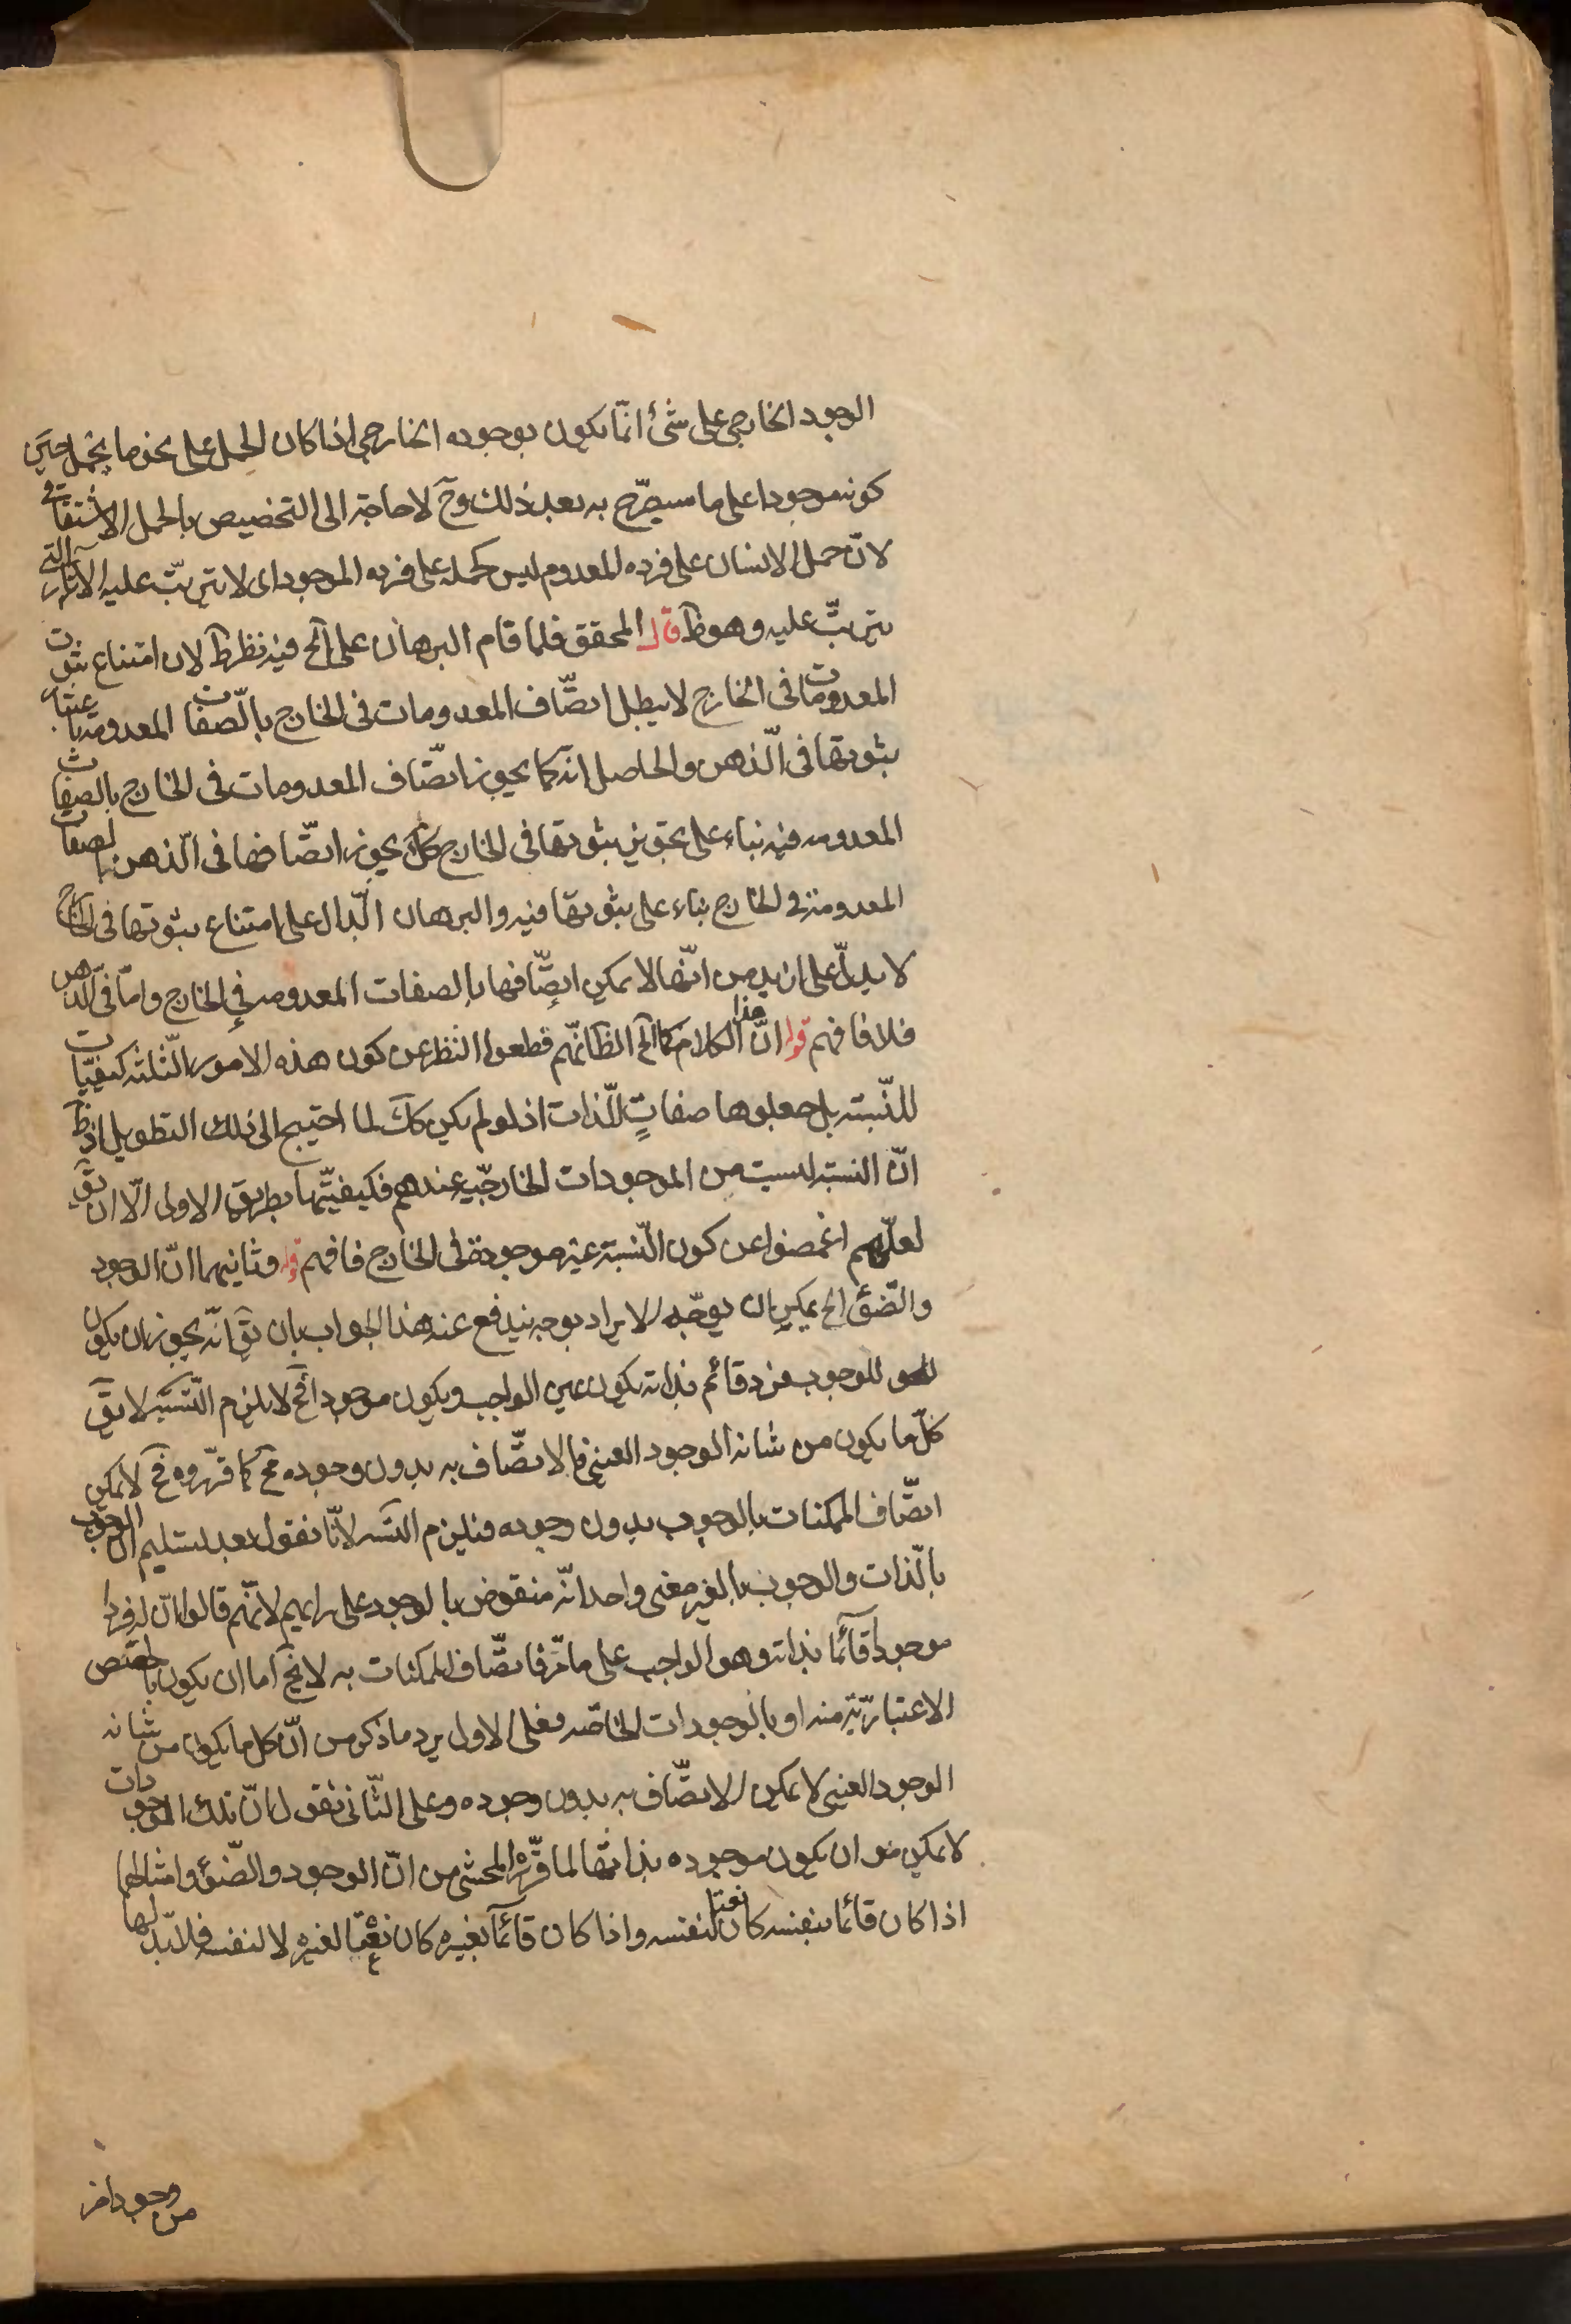 الوجود الخارجي على شئ انّما يكون بوجوده الخارجي اذا كان الحمل على نحو ما يحمل حين
كونه موجودا على ما سيصرّح به بعد ذلك وح لا حاجة الى التخصيص بالحمل الاشتقاقي
لانّ حمل الانسان على فرده المعدوم ليس كحمله على فرده الموجود اى لا يترتّب عليه الآثار التى
يترتّب عليه وهو ظ قال المحقق فلما قام البرهان على الخ فيه نظر ظ لان امتناع ثبوت
المعدومات فى الخارج لا يبطل اتصّاف المعدومات فى الخارج بالصّفات المعدومة باعتبار
ثبوتها فى الّذهن والحاصل انه كما يجوز اتصّاف المعدومات فى الخارج بالصفات
المعدومه فيه بناء على تجويز ثبوتها فى الخارج كك يجوز اتصّافها فى الّذهن بالصفات
المعدومة فى الخارج بناء على ثبوتها فيه والبرهان الّدال على امتناع ثبوتها فى الخارج
لا يدلّ على ازيد من انّها لا يمكن اتصّافها بالصفات المعدومه فى الخارج وامّا فى الّذهن
فلا فافهم قوله انّ هذا الكلام كما الخ الظ انّهم قطعوا النظر عن كون هذه الامور الثّلثه كيفيّات
للنّسبته بل جعلوها صفاتٍ للّذات اذ لو لم يكن كك لما احتيج الى ذلك التطويل اذ ظ
انّ النسبته ليست من الموجودات الخارجيّه عندهم فكيفيّتها بطريق الاولى الّا ان يق
لعلّهم اغمضوا عن كون النّسبته غير موجودة فى الخارج فافهم قوله وثانيهما انّ الوجود
والضّوٴ الخ يمكن ان يوجّه الايراد بوجه يندفع عنه هذا الجواب بان يق انّه يجوز ان يكون
للوجوب فرد قائم بذاته يكون عين الواجب ويكون موجودا فح لا يلزم التّسلسل لا يق
كلّما يكون من شانه الوجود العينى فالاتصّاف به بدون وجوده مح كما قرّروه فح لا يمكن
اتصّاف الممكنات بالوجوب بدون وجوده فيلزم التسلسل لانّا نقول بعد تسليم انّ الوجوب
بالّذات والوجوب بالغير معنى واحد انّه منقوض بالوجود على رايهم لانّهم قالوا انّ له فردا
موجوداً قائما بذاته وهو الواجب على ما مرّ فاتصّاف الممكنات به لا يخ اما ان يكون بالحصص
الاعتباريّة منه او بالوجودات الخاصّه فعلى الاول يرد ما ذكر من انّ كل ما يكون من شانه
الوجود العينى لا يمكن الاتصّاف به بدون وجوده وعلى الثّانى نقول انّ تلك الوجودات
لا يمكن ان يكون موجوده بذاتها لما قرّره المحشى من انّ الوجود والضّوٴ وامثالهما
اذا كان قائما بنفسه كان نعتا لنفسه واذا كان قائماً بغيره كان نعتا لغيره لا لنفسه فلا بّد لها
من وجود اخر